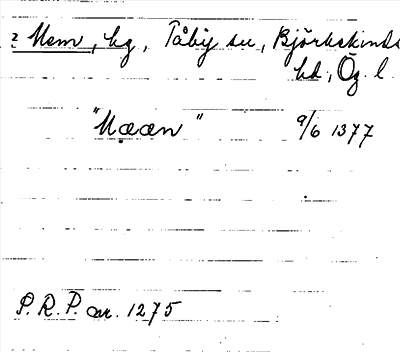 2 Mem, hg, Tåby sn, Björkekinds
hd, Ög. l
"Mææn" 9/6 1377
P. R. P. nr. 1275